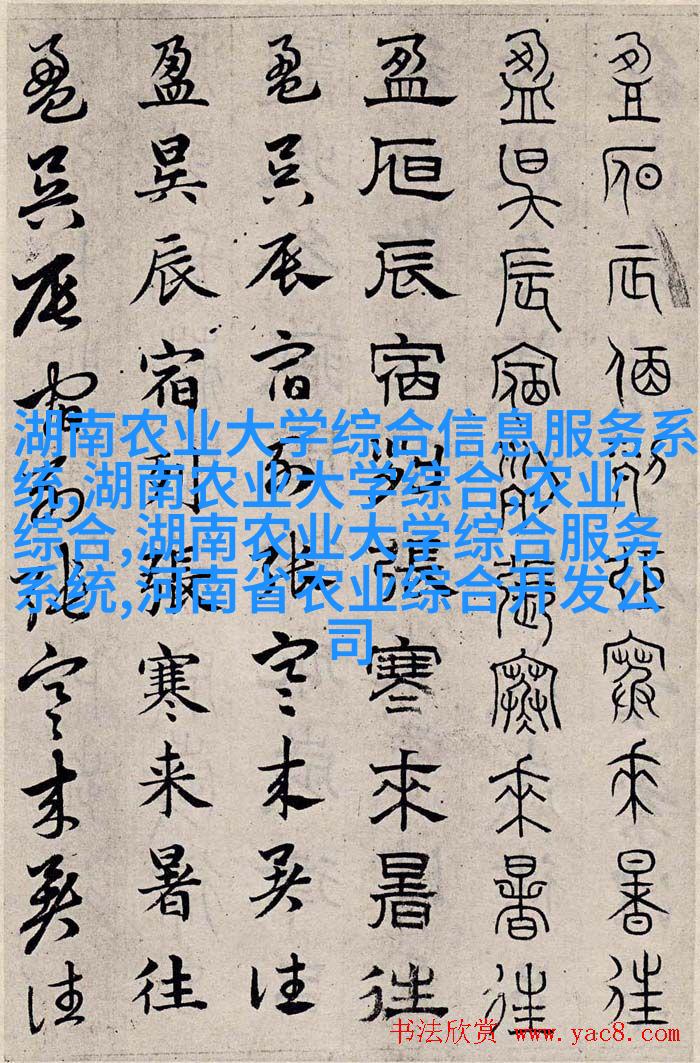 盈昃辰宿列張寒來暑往
盈昃辰宿列張寒來暑往
盈昃辰宿列張寒來暑往
盈昃辰宿列張寒来暑往
盈昃辰宿列張寒来暑往
盈昃辰宿列張寒来暑往
湖南农业大学综合信息服务系
统,湖南农业大学综合,农业
综合,湖南农业大学综合服务
系统,河南省农业综合开发公
司
书法欣赏 www.yac8.com